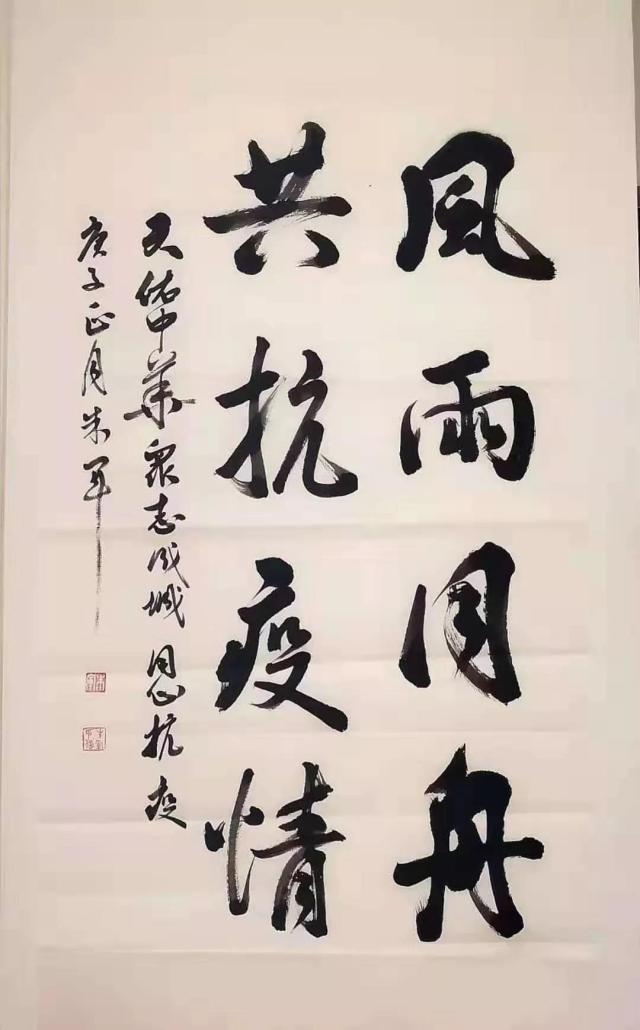 風雨同舟
共抗疫情
天佑中華衆志成城同心抗疫
庚子正月朱軍